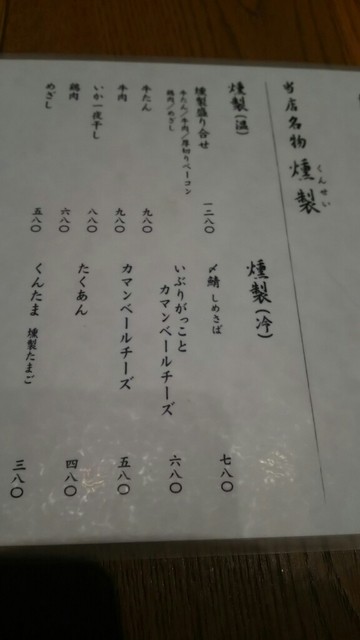 当店名物 燻製
くんせい
燻製(温)
燻製盛り合せ
牛たん/牛肉/厚切りベーコン
鶏肉/めざし
一二八〇
牛たん 九八〇
牛肉 九八〇
いか一夜干し 八八〇
鶏肉 六八〇
めざし 五八〇
燻製(冷)
〆鯖 しめさば 七八〇
いぶりがっこと
カマンベールチーズ 六八〇
カマンベールチーズ 五八〇
たくあん 四八〇
くんたま 燻製たまご 三八〇